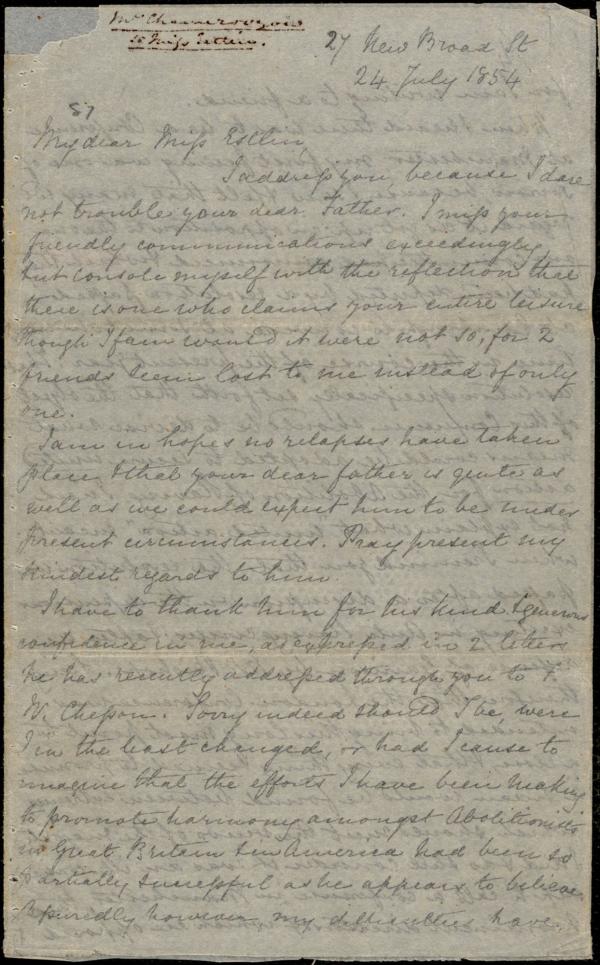 Mr Chamerovzow
to Miss Estlin.
27 New Broad St
24 July 1854
87
My dear Miss Estlin,
I address you, because I dare
not trouble your dear Father. I miss your
friendly communications exceedingly,
but console myself with the reflection that
there is one who claims your entire leisure
though I fain would it were not so; for 2
friends seem lost to me instead of only
one.
I am in hopes no relapses have taken
place & that your dear father is quite as
well as we could expect him to be under
present circumstances. Pray present my
kindest regards to him.
I have to thank him for his kind & generous
confidence in me, as expressed in 2 letters
he has recently addressed through you to F.
W. Chesson. Sorry indeed should I be, were
I in the least changed, or had I cause to
imagine that the efforts I have been making
to promote harmony amongst Abolitionists
in Great Britain & in America had been so
partially successful as he appears to believe.
Assuredly however my difficulties have